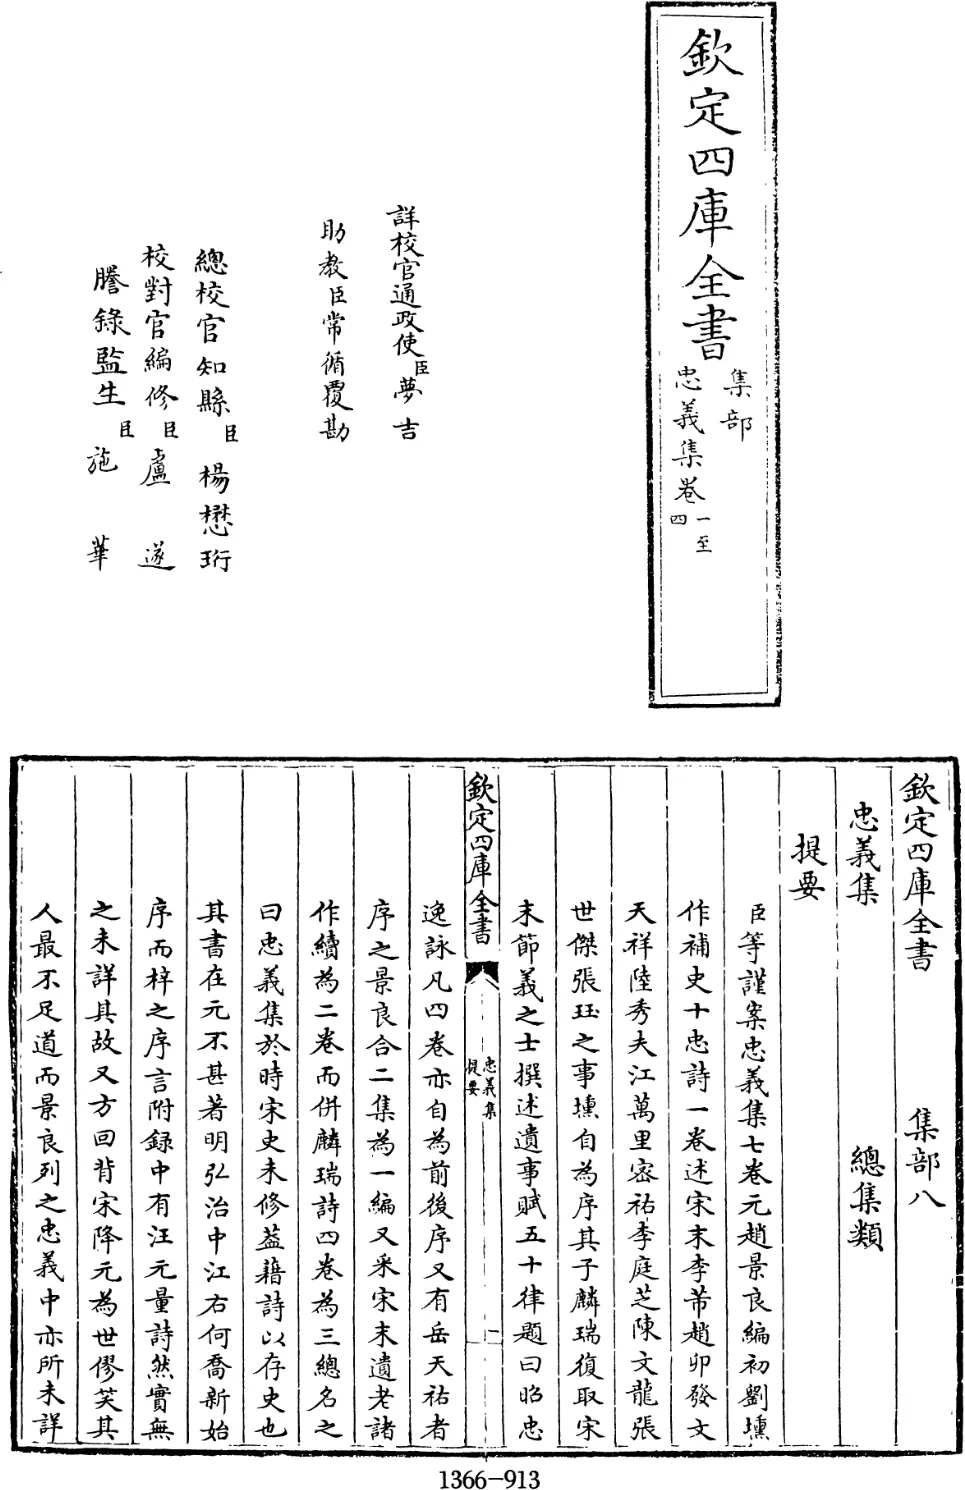 欽定四庫全書
集部
忠義集卷一至四
詳校官通政使臣夢吉
助教臣常循覆勘
總校官知縣臣楊懋珩
校對官編修臣盧遂
謄錄監生臣施華
欽定四庫全書 集部八
忠義集 總集類
提要
臣等謹案忠義集七卷元趙景良編初劉壎
作補史十忠詩一卷述宋末李芾趙卯發文
天祥陸秀夫江萬里密祐李庭芝陳文龍張
世傑張珏之事壎自為序其子麟瑞復取宋
末節義之士撰述遺事賦五十律題曰昭忠
欽定四庫全書
忠義集
提要
二
逸詠凡四卷亦自為前後序又有岳天祐者
序之景良合二集為一編又采宋末遺老諸
作續為二卷而併麟瑞詩四卷為三總名之
曰忠義集於時宋史未修葢藉詩以存史也
其書在元不甚著明弘治中江右何喬新始
序而梓之序言附録中有汪元量詩然實無
之未詳其故又方回背宋降元為世僇笑其
人最不足道而景良列之忠義中亦所未詳
1366-913